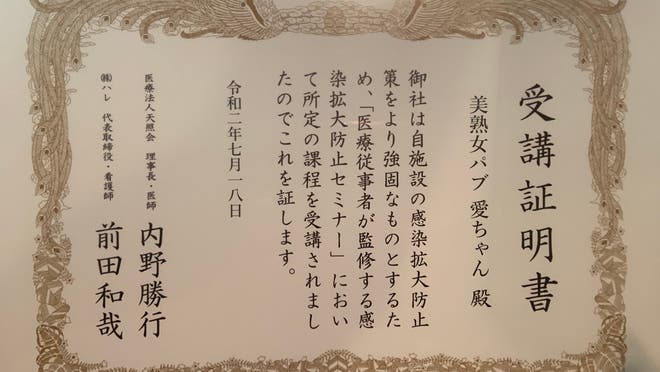 受講証明書
美熟女パブ 愛ちゃん 殿
御社は自施設の感染拡大防止
策をより強固なものとするた
め、「医療従事者が監修する感
染拡大防止セミナー」におい
て所定の課程を受講されまし
たのでこれを証します。
令和二年七月一八日
医療法人天照会 理事長・医師
内野勝行
㈱ハレ 代表取締役・看護師
前田和哉